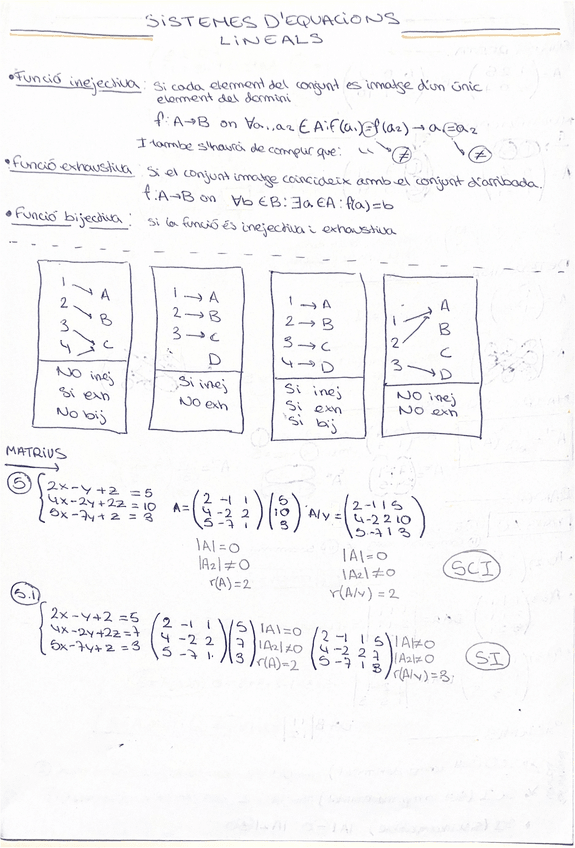 SISTEMES D'EQUACIONS
LINEALS
• Funció inejectiva: Si cada element del conjunt es imatge d'un únic
element del domini
f: A→B on ∀a₁..a₂ ∈ A: f(a₁)=f(a₂) → a₁=a₂
I també s'haurà de complir que: " ≠ ≠
• Funció exhaustiva Si el conjunt imatge coincideix amb el conjunt d'arribada.
f: A→B on ∀b ∈ B: ∃a ∈ A: f(a)=b
• Funció bijectiva: Si la funció és inejectiva i exhaustiva
1 2 3 4 A B C
NO inej
Si exh
No bij
1 → A
2 → B
3 → C
D
Si inej
NO exh
1 → A
2 → B
3 → C
4 → D
Si inej
Si exh
Si bij
1 2 3 A B C D
NO inej
NO exh
MATRIUS
5 { 2x-y+z = 5
4x-2y+2z = 10
5x-7y+z = 3
A = ( 2 -1 1
4 -2 2
5 -7 1 ) ( 5
10
3 )
A/v = ( 2 -1 1 5
4 -2 2 10
5 -7 1 3 )
|A|=0
|A₂|≠0
r(A)=2
|A|=0
|A₂|≠0
r(A/v) = 2
SCI
5.1 { 2x-y+z = 5
4x-2y+2z = 7
5x-7y+z = 3
( 2 -1 1
4 -2 2
5 -7 1 ) ( 5
7
3 )
|A|=0
|A₂|≠0
r(A)=2
( 2 -1 1 5
4 -2 2 7
5 -7 1 3 )
|A|≠0
|A₂|≠0
r(A/v)=3
SI